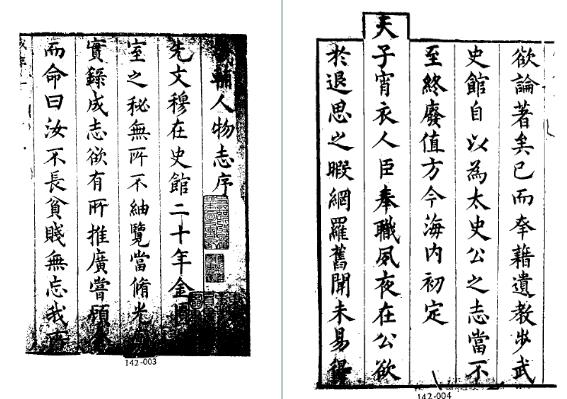 輔人物志序
先文穆在史館二十年金
室之秘無所不紬覽當脩光
實錄成志欲有所推廣嘗顧
而命曰汝不長貧賤無忘我
142-003
欲論著矣已而奉藉遺教步武
史館自以為太史公之志當不
至終廢值方今海內初定
天子宵衣人臣奉職夙夜在公欲
於退思之暇網羅舊聞未易得
142-004